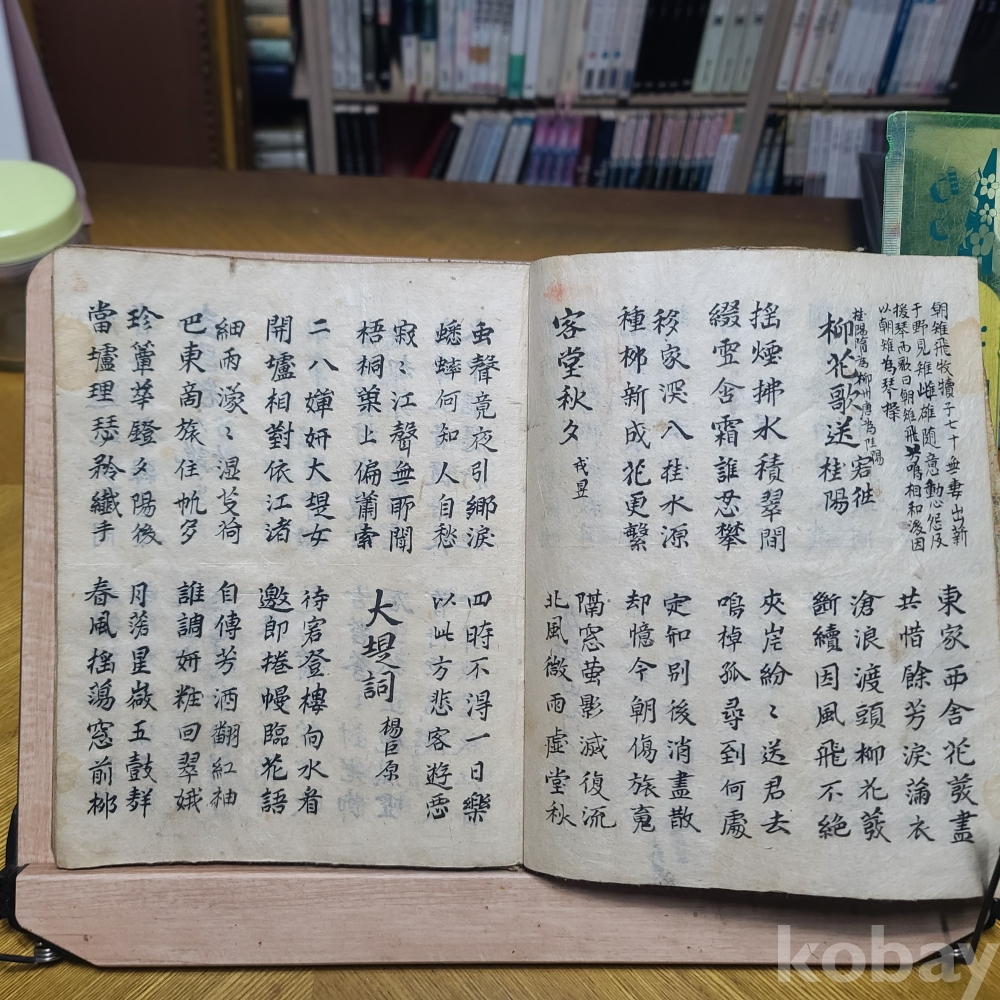 朝雉飛牧犢子七十無妻出薪
于野見雉雌雄隨意動
後琴而歌曰朝雉飛兮鳴相和後因
以朝雉為琴操
東家西舍花發盡
共惜餘芳淚滿衣
柳花歌送客往桂陽
桂陽隋為柳州唐為桂陽
滄浪渡頭柳花發
斷續因風飛不絶
搖煙拂水積翠間
綴雪含霜誰忍攀
夾岸紛〻送君去
鳴棹孤尋到何處
移家深入桂水源
種栁新成花更繁
定知別後消盡散
却憶今朝傷旅魂
客堂秋夕 戎昱
隔窓螢影滅復流
北風微雨虛堂秋
虫聲竟夜引鄉淚
蟋蟀何知人自愁
四時不得一日樂
以此方悲客遊惡
寂〻江聲無所聞
梧桐葉上偏蕭索
大堤詞 楊巨原
二八嬋妍大堤女
開壚相對依江渚
待客登樓向水看
邀郎捲幔臨花語
細雨濛〻湿芰荷
巴東商旅住帆多
自傳芳酒翻紅袖
誰調妍粧回翠娥
珍簟華鐙夕陽後
當壚理瑟矜纖手
月落星微五鼓聲
春風搖蕩窓前栁
kobay